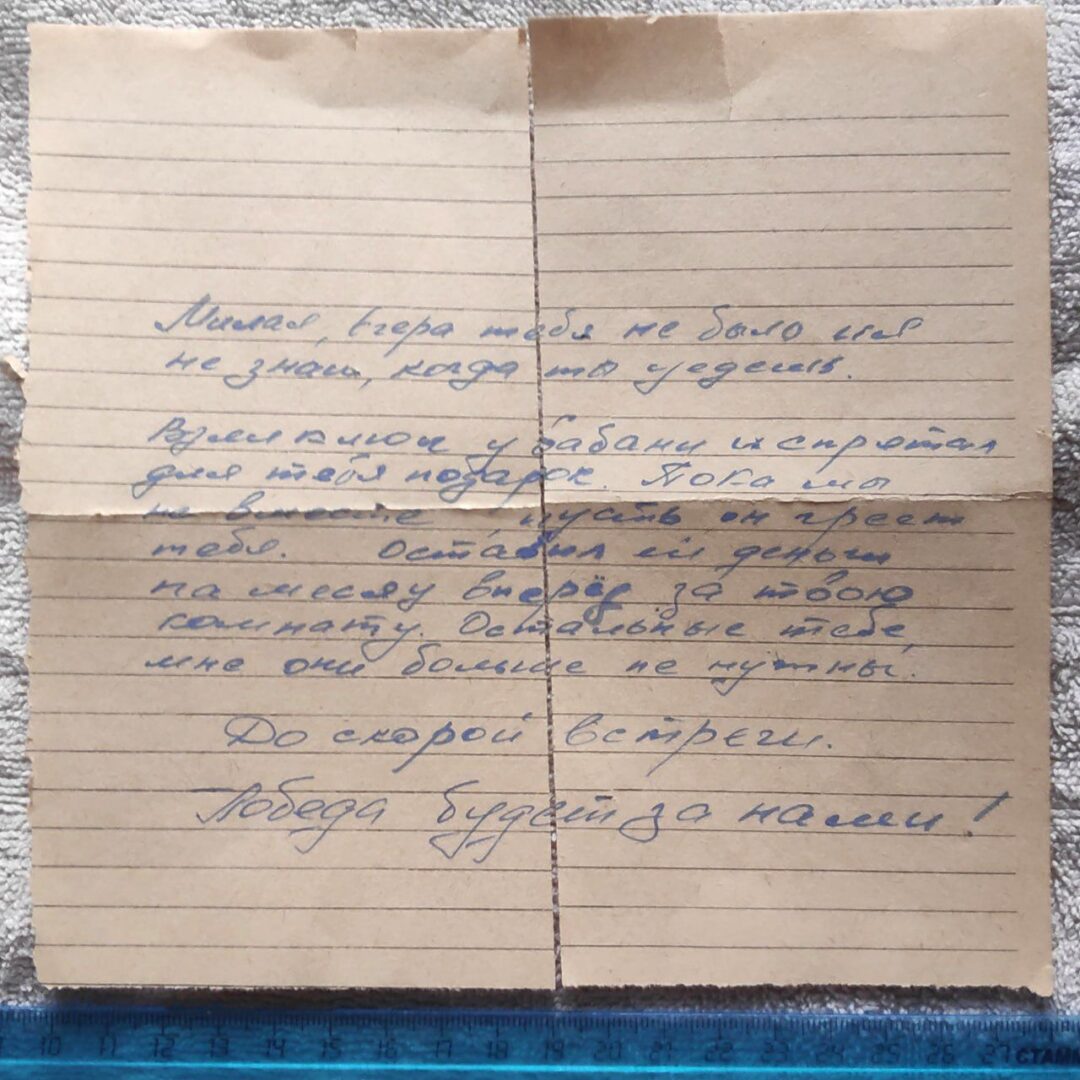 Милая, вчера тебя не было и я
не знаю, когда ты уедешь.
Взял ключ у бабани и спрятал
для тебя подарок. Пока мы
не вместе, пусть он греет
тебя. Оставил ей деньги
на месяц вперёд за твою
комнату. Остальные тебе,
мне они больше не нужны.
До скорой встречи.
Победа будет за нами!
10 11 12 13 14 15 16 17 18 19 20 21 22 23 24 25 26 27 СТАММ